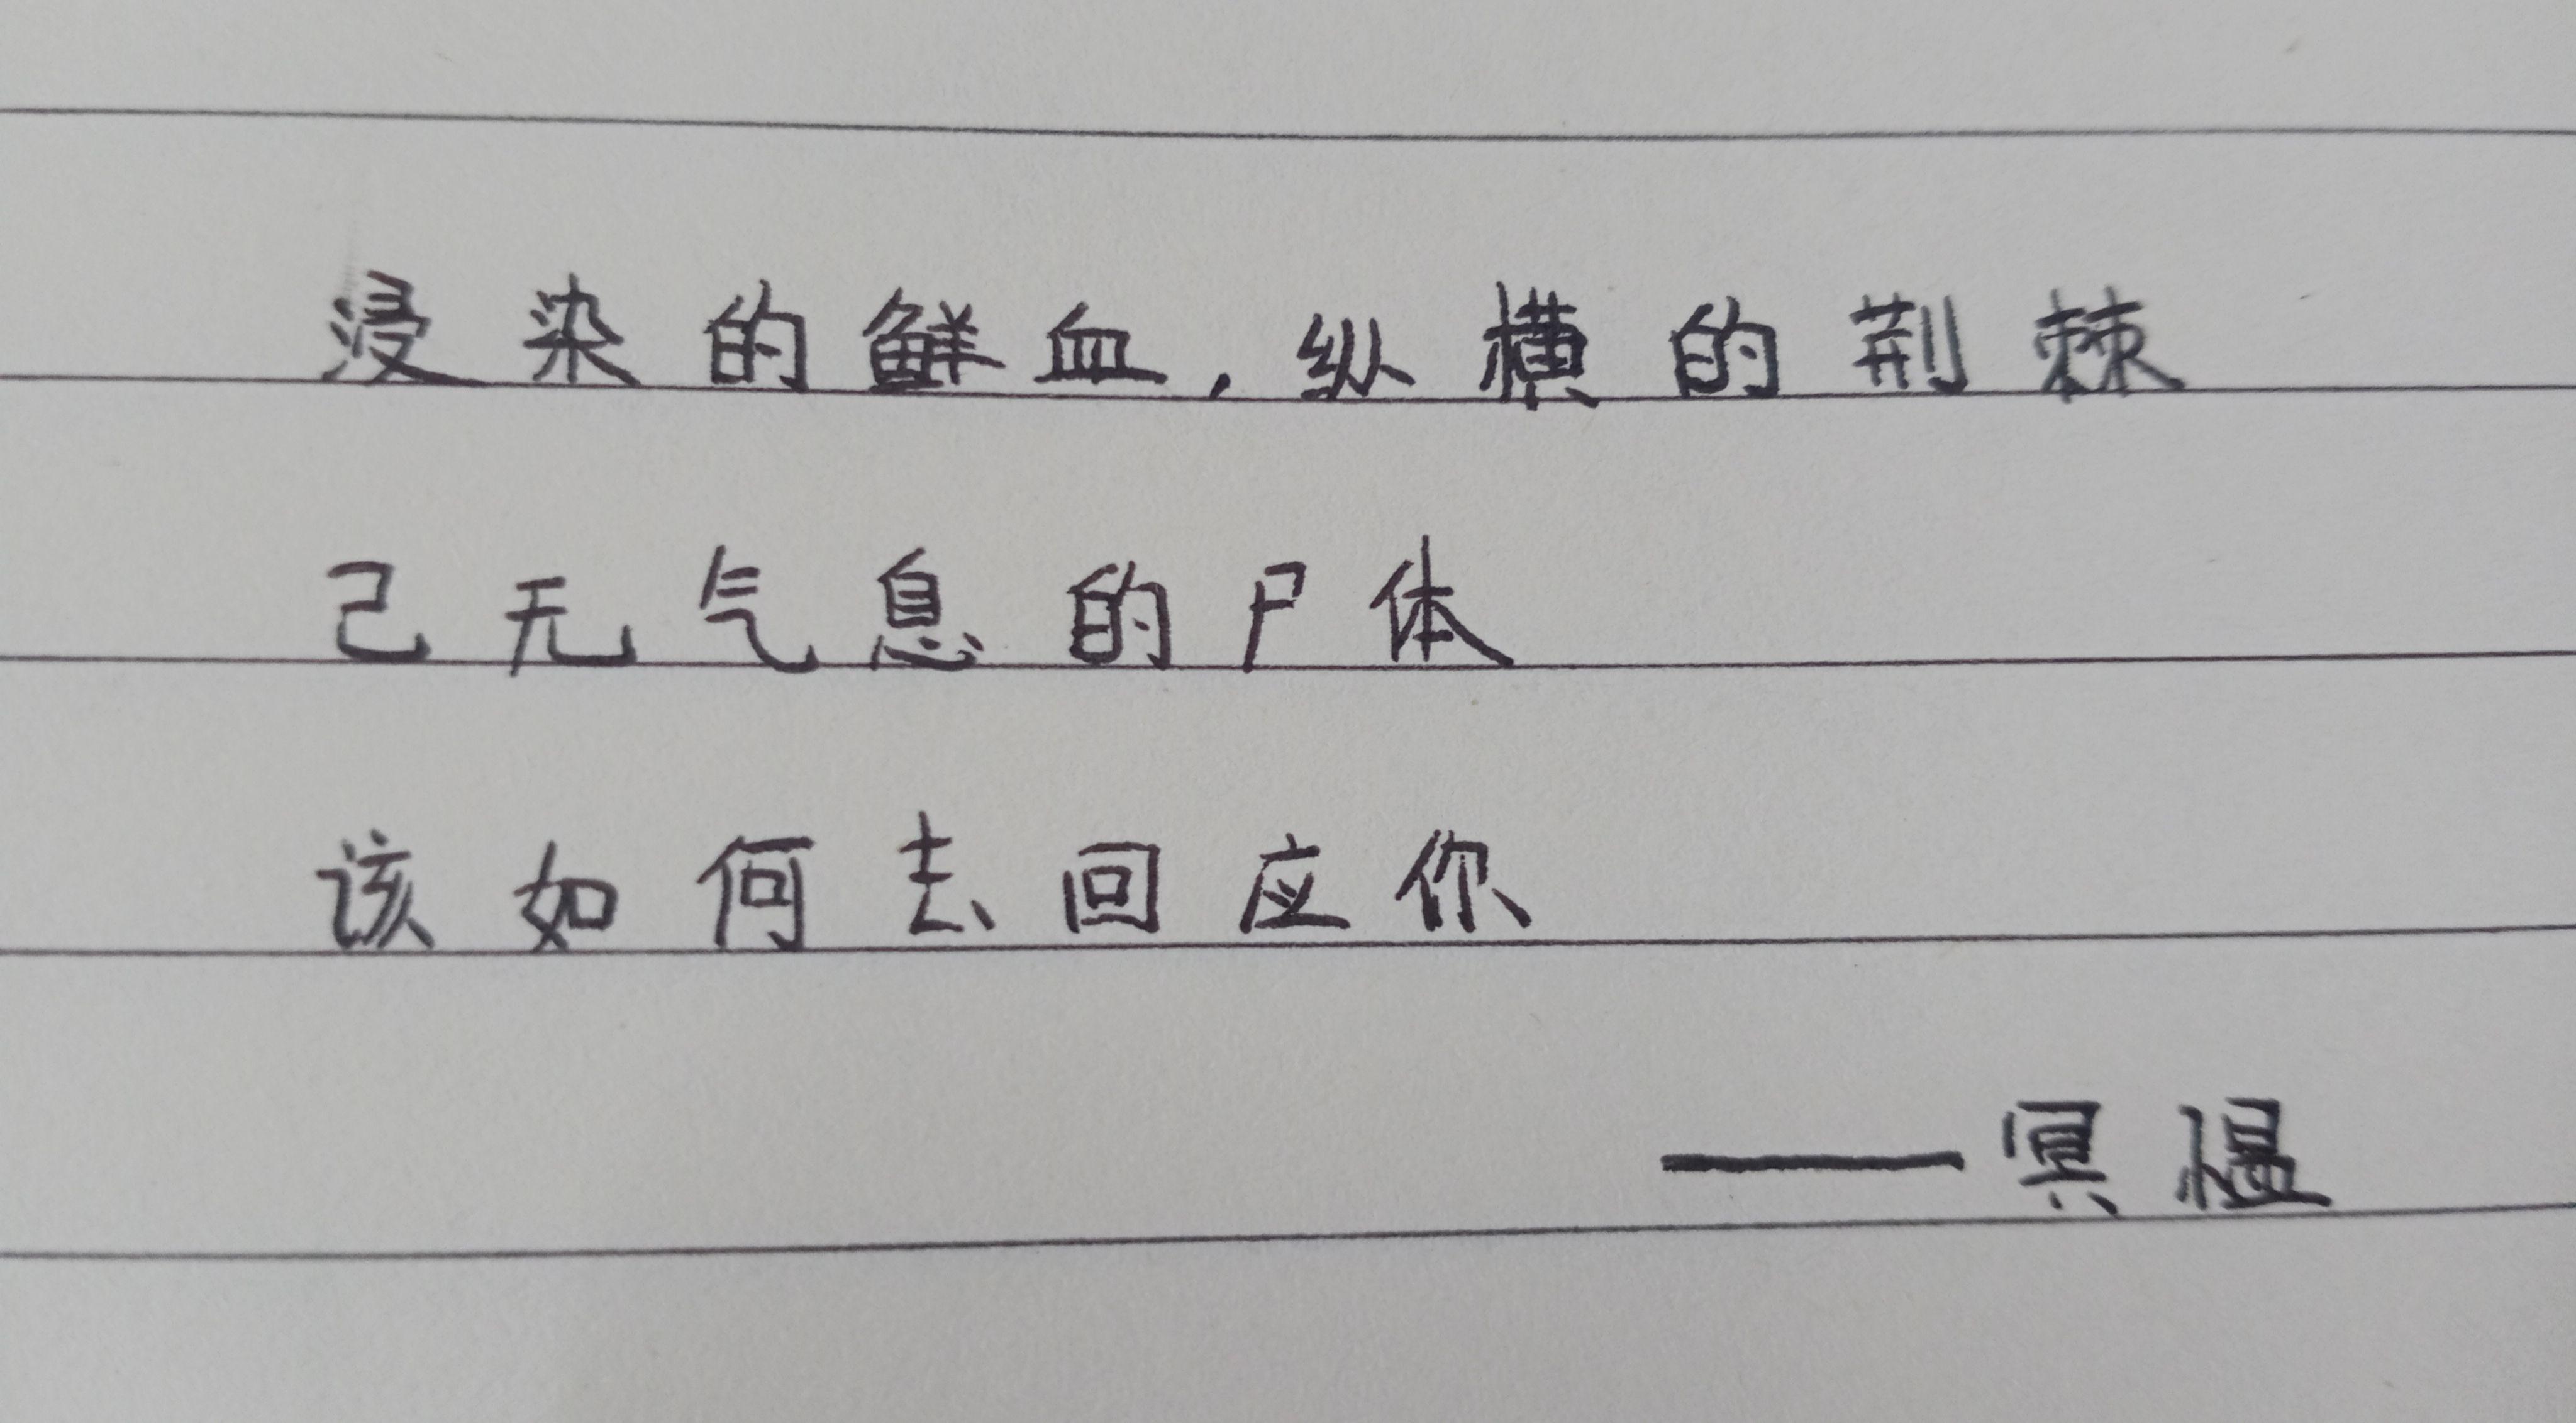 浸染的鲜血,纵横的荆棘
己无气息的尸体
该如何去回应你
——冥愠